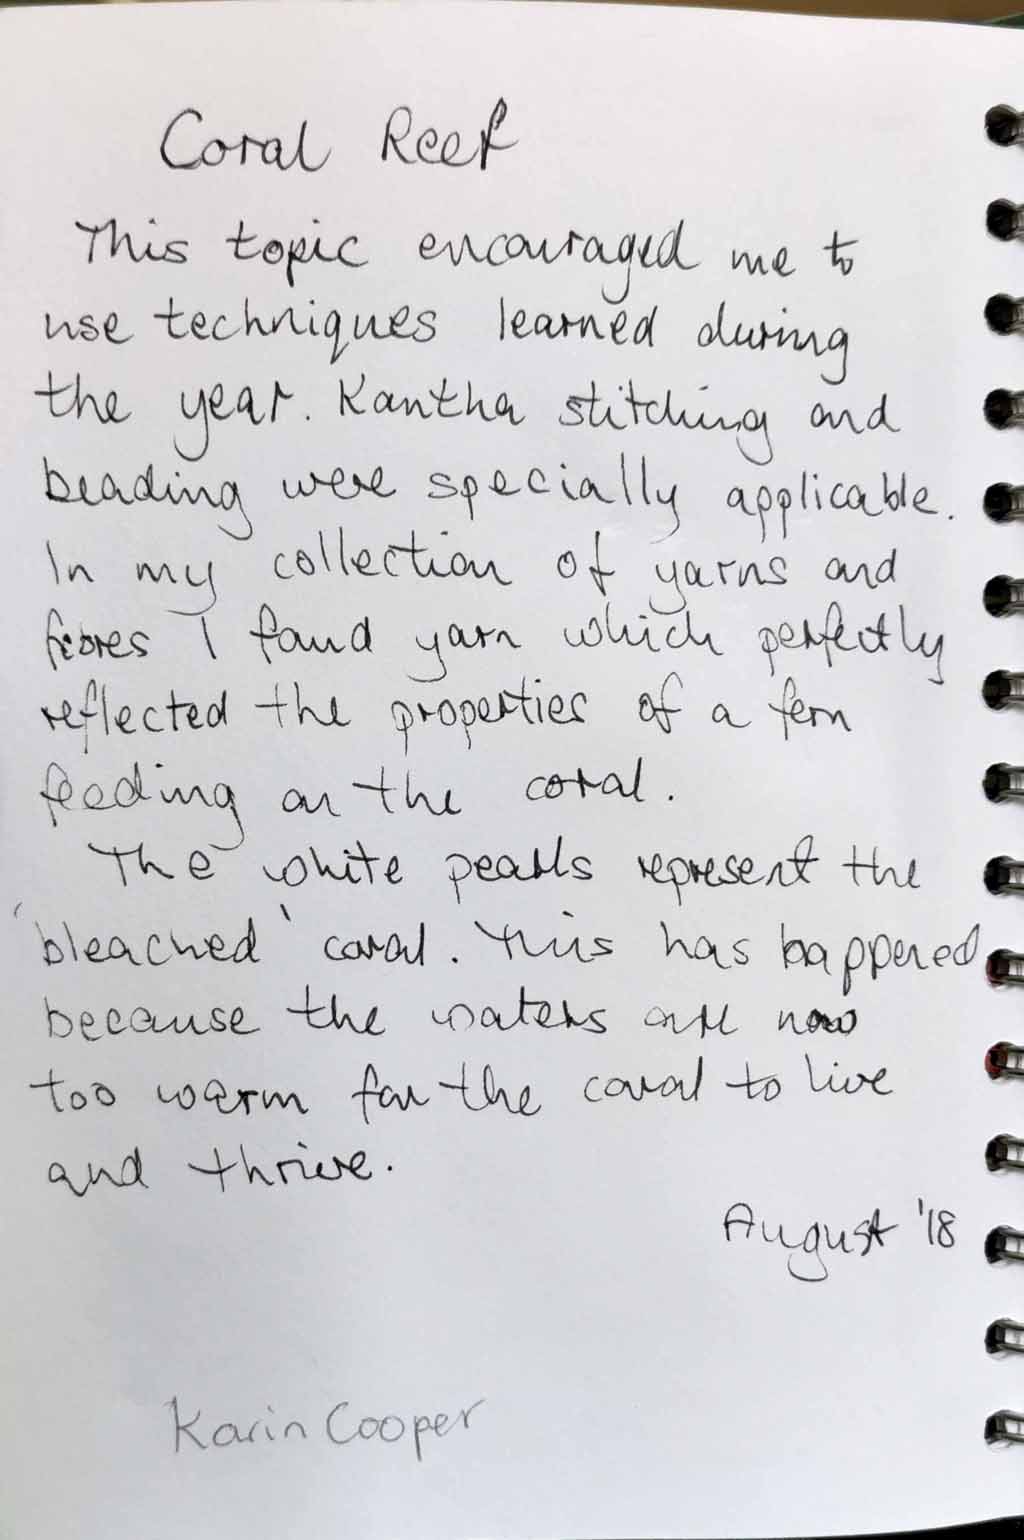 Coral Reef
This topic encouraged me to
use techniques learned during
the year. Kantha stitching and
beading were specially applicable.
In my collection of yarns and
fibres I found yarn which perfectly
reflected the properties of a fern
feeding on the coral.
The white pearls represent the
'bleached' coral. This has happened
because the waters are now
too warm for the coral to live
and thrive.
August '18
Karin Cooper